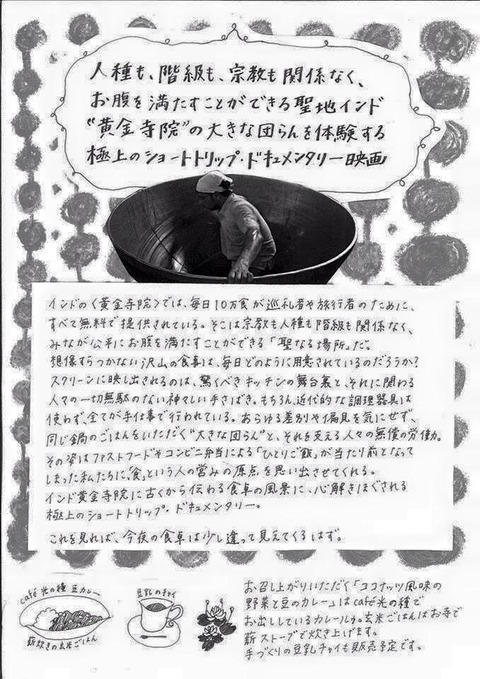 人種も、階級も、宗教も関係なく、
お腹を満たすことができる聖地インド
“黄金寺院”の大きな団らんを体験する
極上のショートトリップ・ドキュメンタリー映画
インドの〈黄金寺院〉では、毎日10万食が巡礼者や旅行者のために、
すべて無料で提供されている。そこは宗教も人種も階級も関係なく、
みなが公平にお腹を満たすことができる「聖なる場所」だ。
想像すらつかない沢山の食事は、毎日どのように用意されているのだろうか？
スクリーンに映し出されるのは、驚くべきキッチンの舞台裏と、それに関わる
人々の一切無駄のない神々しい手さばき。もちろん、近代的な調理器具は
使わず、全てが手仕事で行われている。あらゆる差別や偏見を気にせず、
同じ鍋のごはんをいただく“大きな団らん”と、それを支える人々の無償の労働力。
その姿はファストフードやコンビニ弁当による「ひとりご飯」が当たり前となって
しまった私たちに、「食」という人の営みの原点を思い出させてくれる。
インド黄金寺院に古くから伝わる食卓の風景に、心解きほぐされる
極上のショートトリップ・ドキュメンタリー。
これを見れば、今夜の食卓は少し違って見えてくるはず。
café 光の種 豆カレー
薪炊きの玄米ごはん
豆乳のチャイ
お召し上がりいただく「ココナッツ風味の
野菜と豆のカレー」はcafé光の種で
お出ししているカレールウ。玄米ごはんはお寺で
薪ストーブで炊き上げます。
手づくりの豆乳チャイも販売予定です。